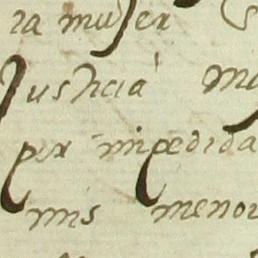 ra muger
Justicia
por impedida
mis menor